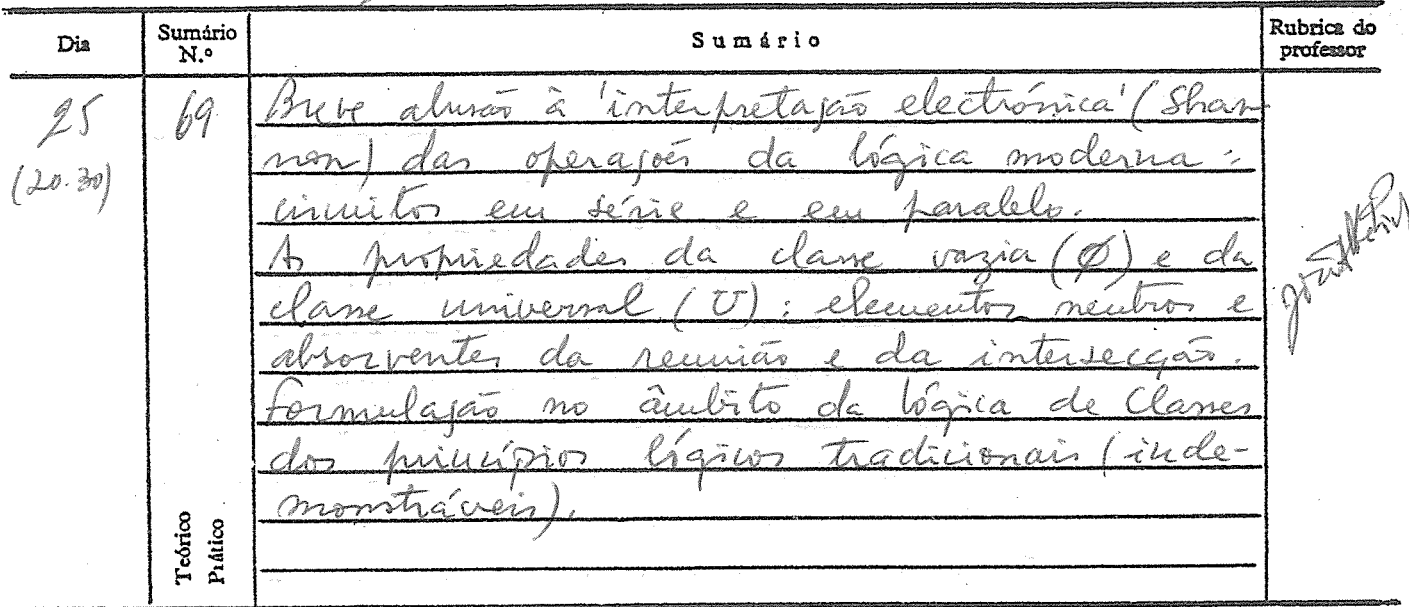 Dia
Sumário
N.º
Sumário
Rubrica do
professor
25
(20.30)
69
Breve alusão à 'interpretação electrónica' (Shan
non) das operações da lógica moderna:
circuitos em série e em paralelo.
As propriedades da classe vazia (Ø) e da
classe universal (U): elementos neutros e
absorventes da reunião e da intersecção.
Formulação no âmbito da lógica de Classes
dos princípios lógicos tradicionais (inde-
monstráveis).
Teórico
Prático